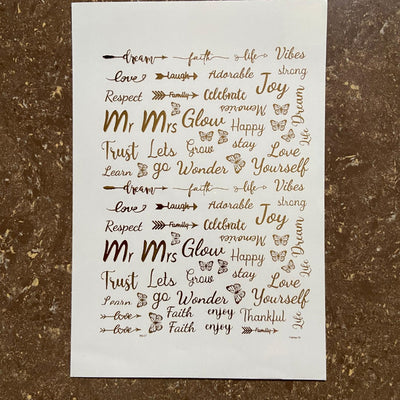 dream faith life Vibes
love laugh Adorable strong
Respect Family Celebrate Joy
Mr Mrs Glow Memories Dream
Happy Life
Trust Lets Grow stay Love
Learn go Wonder Yourself
dream faith life Vibes
love laugh Adorable strong
Respect Family Celebrate Joy
Mr Mrs Glow Memories Dream
Happy Life
Trust Lets Grow stay Love
Learn go Wonder Yourself
love Faith enjoy Thankful Life
love Faith enjoy Family